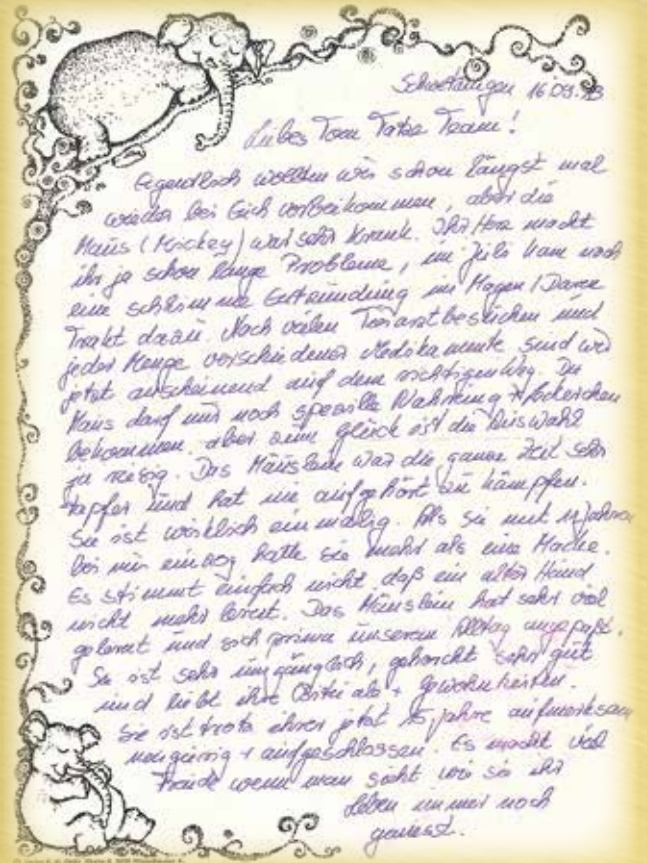 Schwetzingen 16.09.13
Liebes Tom Tatze Team!
Eigentlich wollten wir schon längst mal
wieder bei Euch vorbeikommen, aber die
Maus (Mickey) war sehr krank. Ihr Herz macht
ihr ja schon lange Probleme, im Juli kam noch
eine schlimme Entzündung im Magen/Darm
Trakt dazu. Nach vielen Tierarztbesuchen und
jeder Menge verschiedener Medikamente sind wir
jetzt anscheinend auf dem richtigen Weg. Die
Maus darf nur noch spezielle Nahrung +
bekommen, aber zum Glück ist die Auswahl
ja riesig. Das Mäuslein war die ganze Zeit sehr
tapfer und hat nie aufgehört zu kämpfen.
Sie ist wirklich einmalig. Als sie mit Jahren
bei mir einzog hatte sie mehr als eine Macke.
Es stimmt einfach nicht, daß ein alter Hund
nicht mehr lernt. Das Mäuslein hat sehr viel
gelernt und sich prima unserem Alltag angepaßt.
Sie ist sehr umgänglich, gehorcht sehr gut
und liebt ihre Rituale + Gewohnheiten.
Sie ist trotz ihrer jetzt 15 Jahre aufmerksam
neugierig + aufgeschlossen. Es macht viel
Freude wenn man sieht wie sie ihr
Leben immer noch
geniesst.